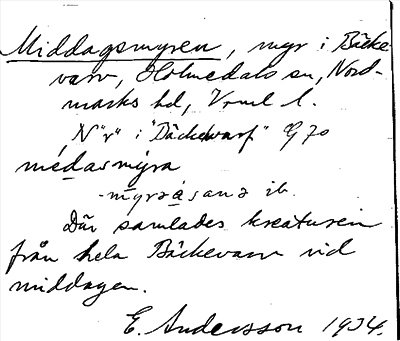 Middagsmyren, myr i Bäcke-
varv, Holmedals sn, Nord-
marks hd, Vrml l.
N "r" i "Bäckewarf" G 70
mẹdasmyra
-myrəåsanə ib.
Där samlades kreaturen
från hela Bäckevarv vid
middagen.
E. Andersson 1934.